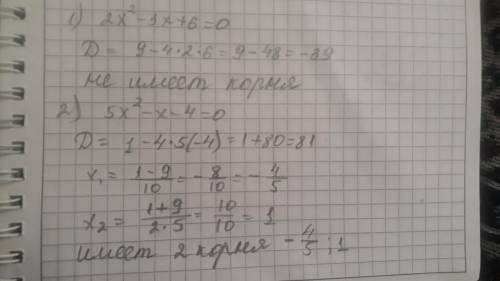 1) 2x² - 3x + 6 = 0
D = 9 - 4·2·6 = 9 - 48 = -39
не имеет корня
2) 5x² - x - 4 = 0
D = 1 - 4·5(-4) = 1 + 80 = 81
x₁ = \frac{1-9}{10} = -\frac{8}{10} = -\frac{4}{5}
x₂ = \frac{1+9}{2·5} = \frac{10}{10} = 1
имеет 2 корня -\frac{4}{5}; 1